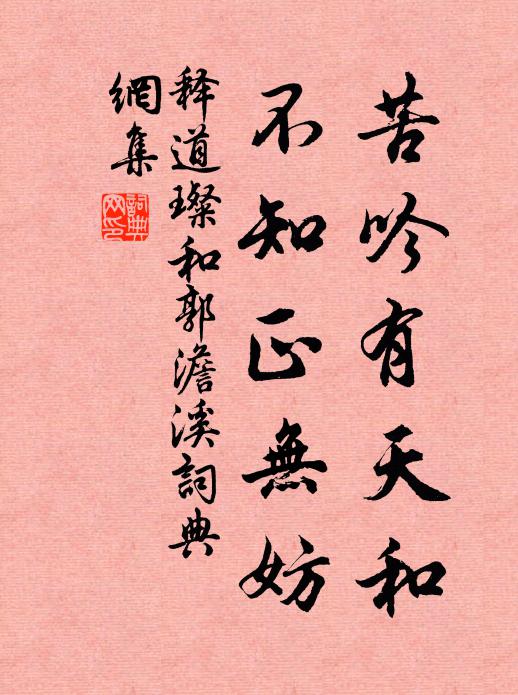 苦吟有天和
不知正無妨
释道璨和郭澹溪詞典
網集
詞典
网印